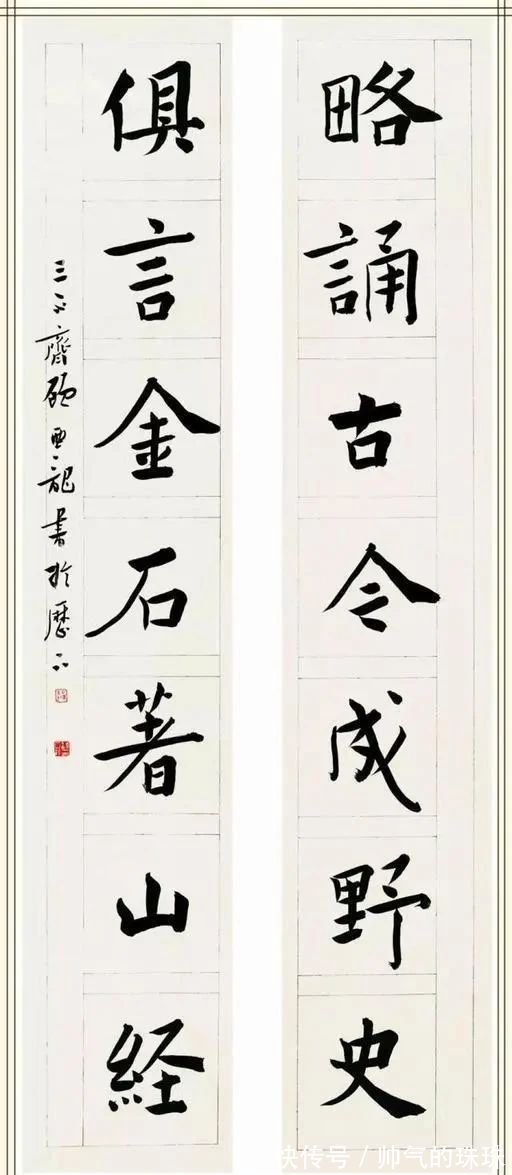 略誦古今成野史
俱言金石著山経
三不齋顧亞龍書於歷下
快传号 / 帅气的珠珠